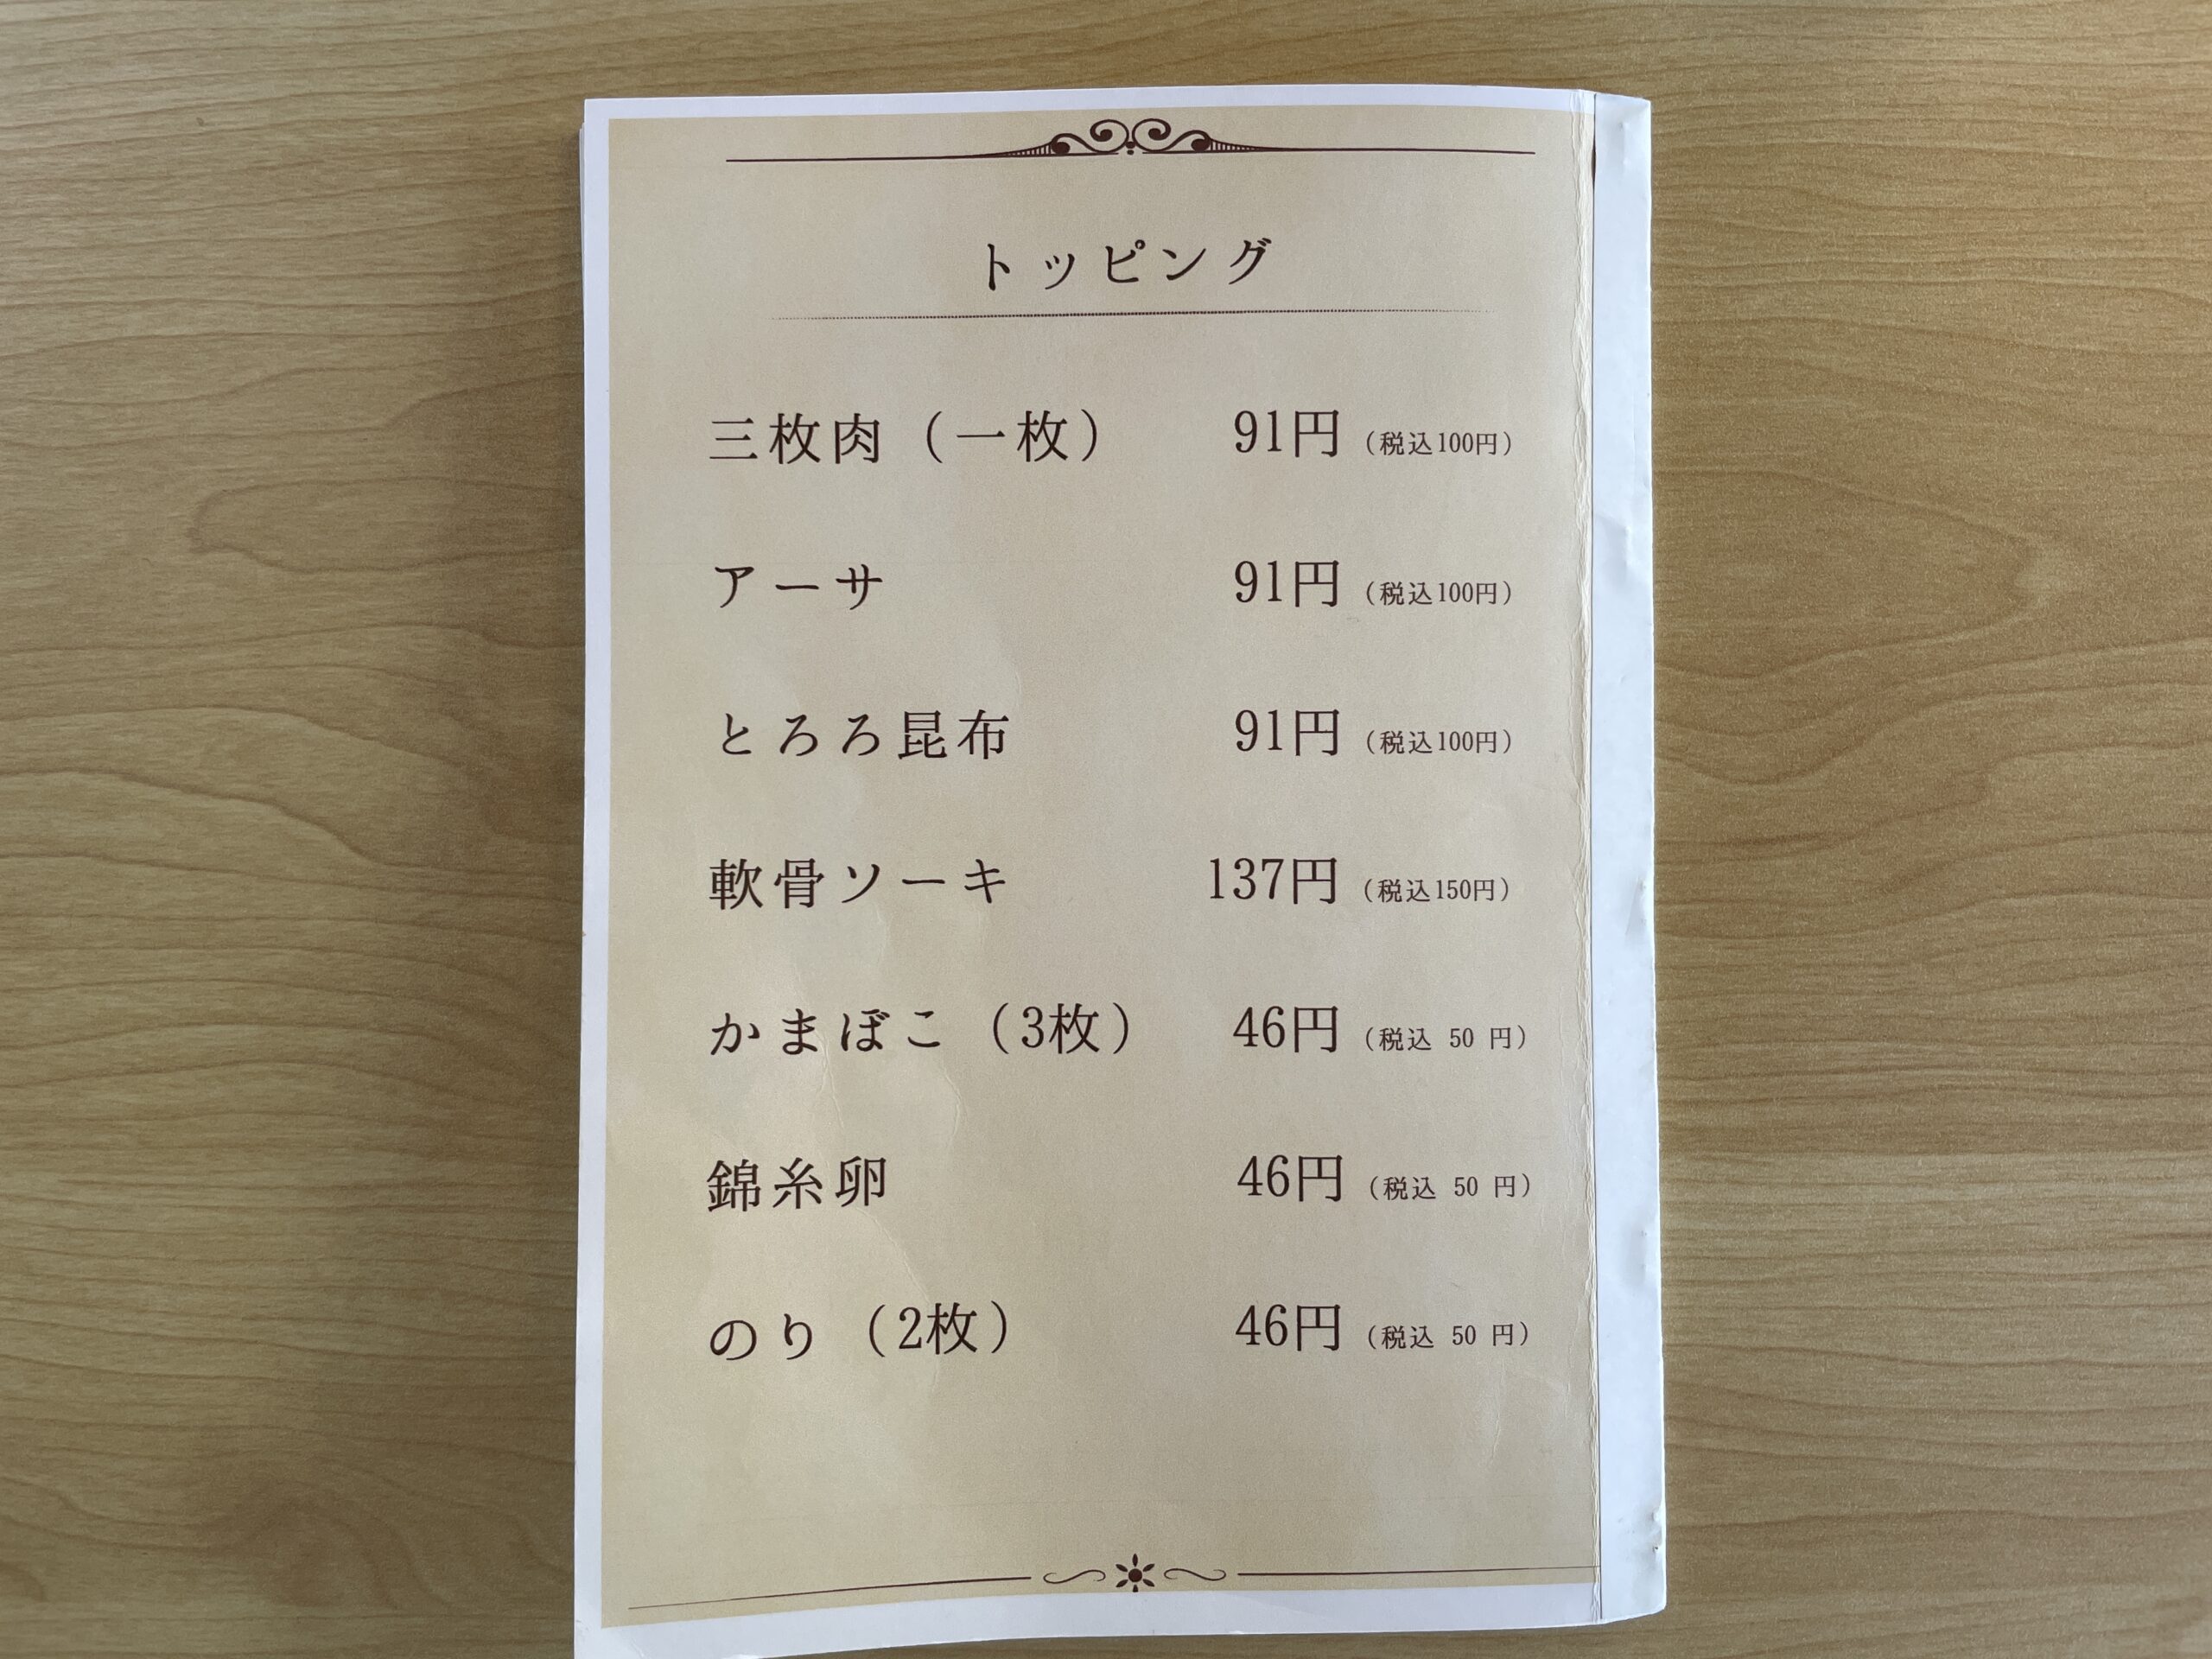 トッピング
三枚肉（一枚） 91円（税込100円）
アーサ 91円（税込100円）
とろろ昆布 91円（税込100円）
軟骨ソーキ 137円（税込150円）
かまぼこ（3枚） 46円（税込 50 円）
錦糸卵 46円（税込 50 円）
のり（2枚） 46円（税込 50 円）